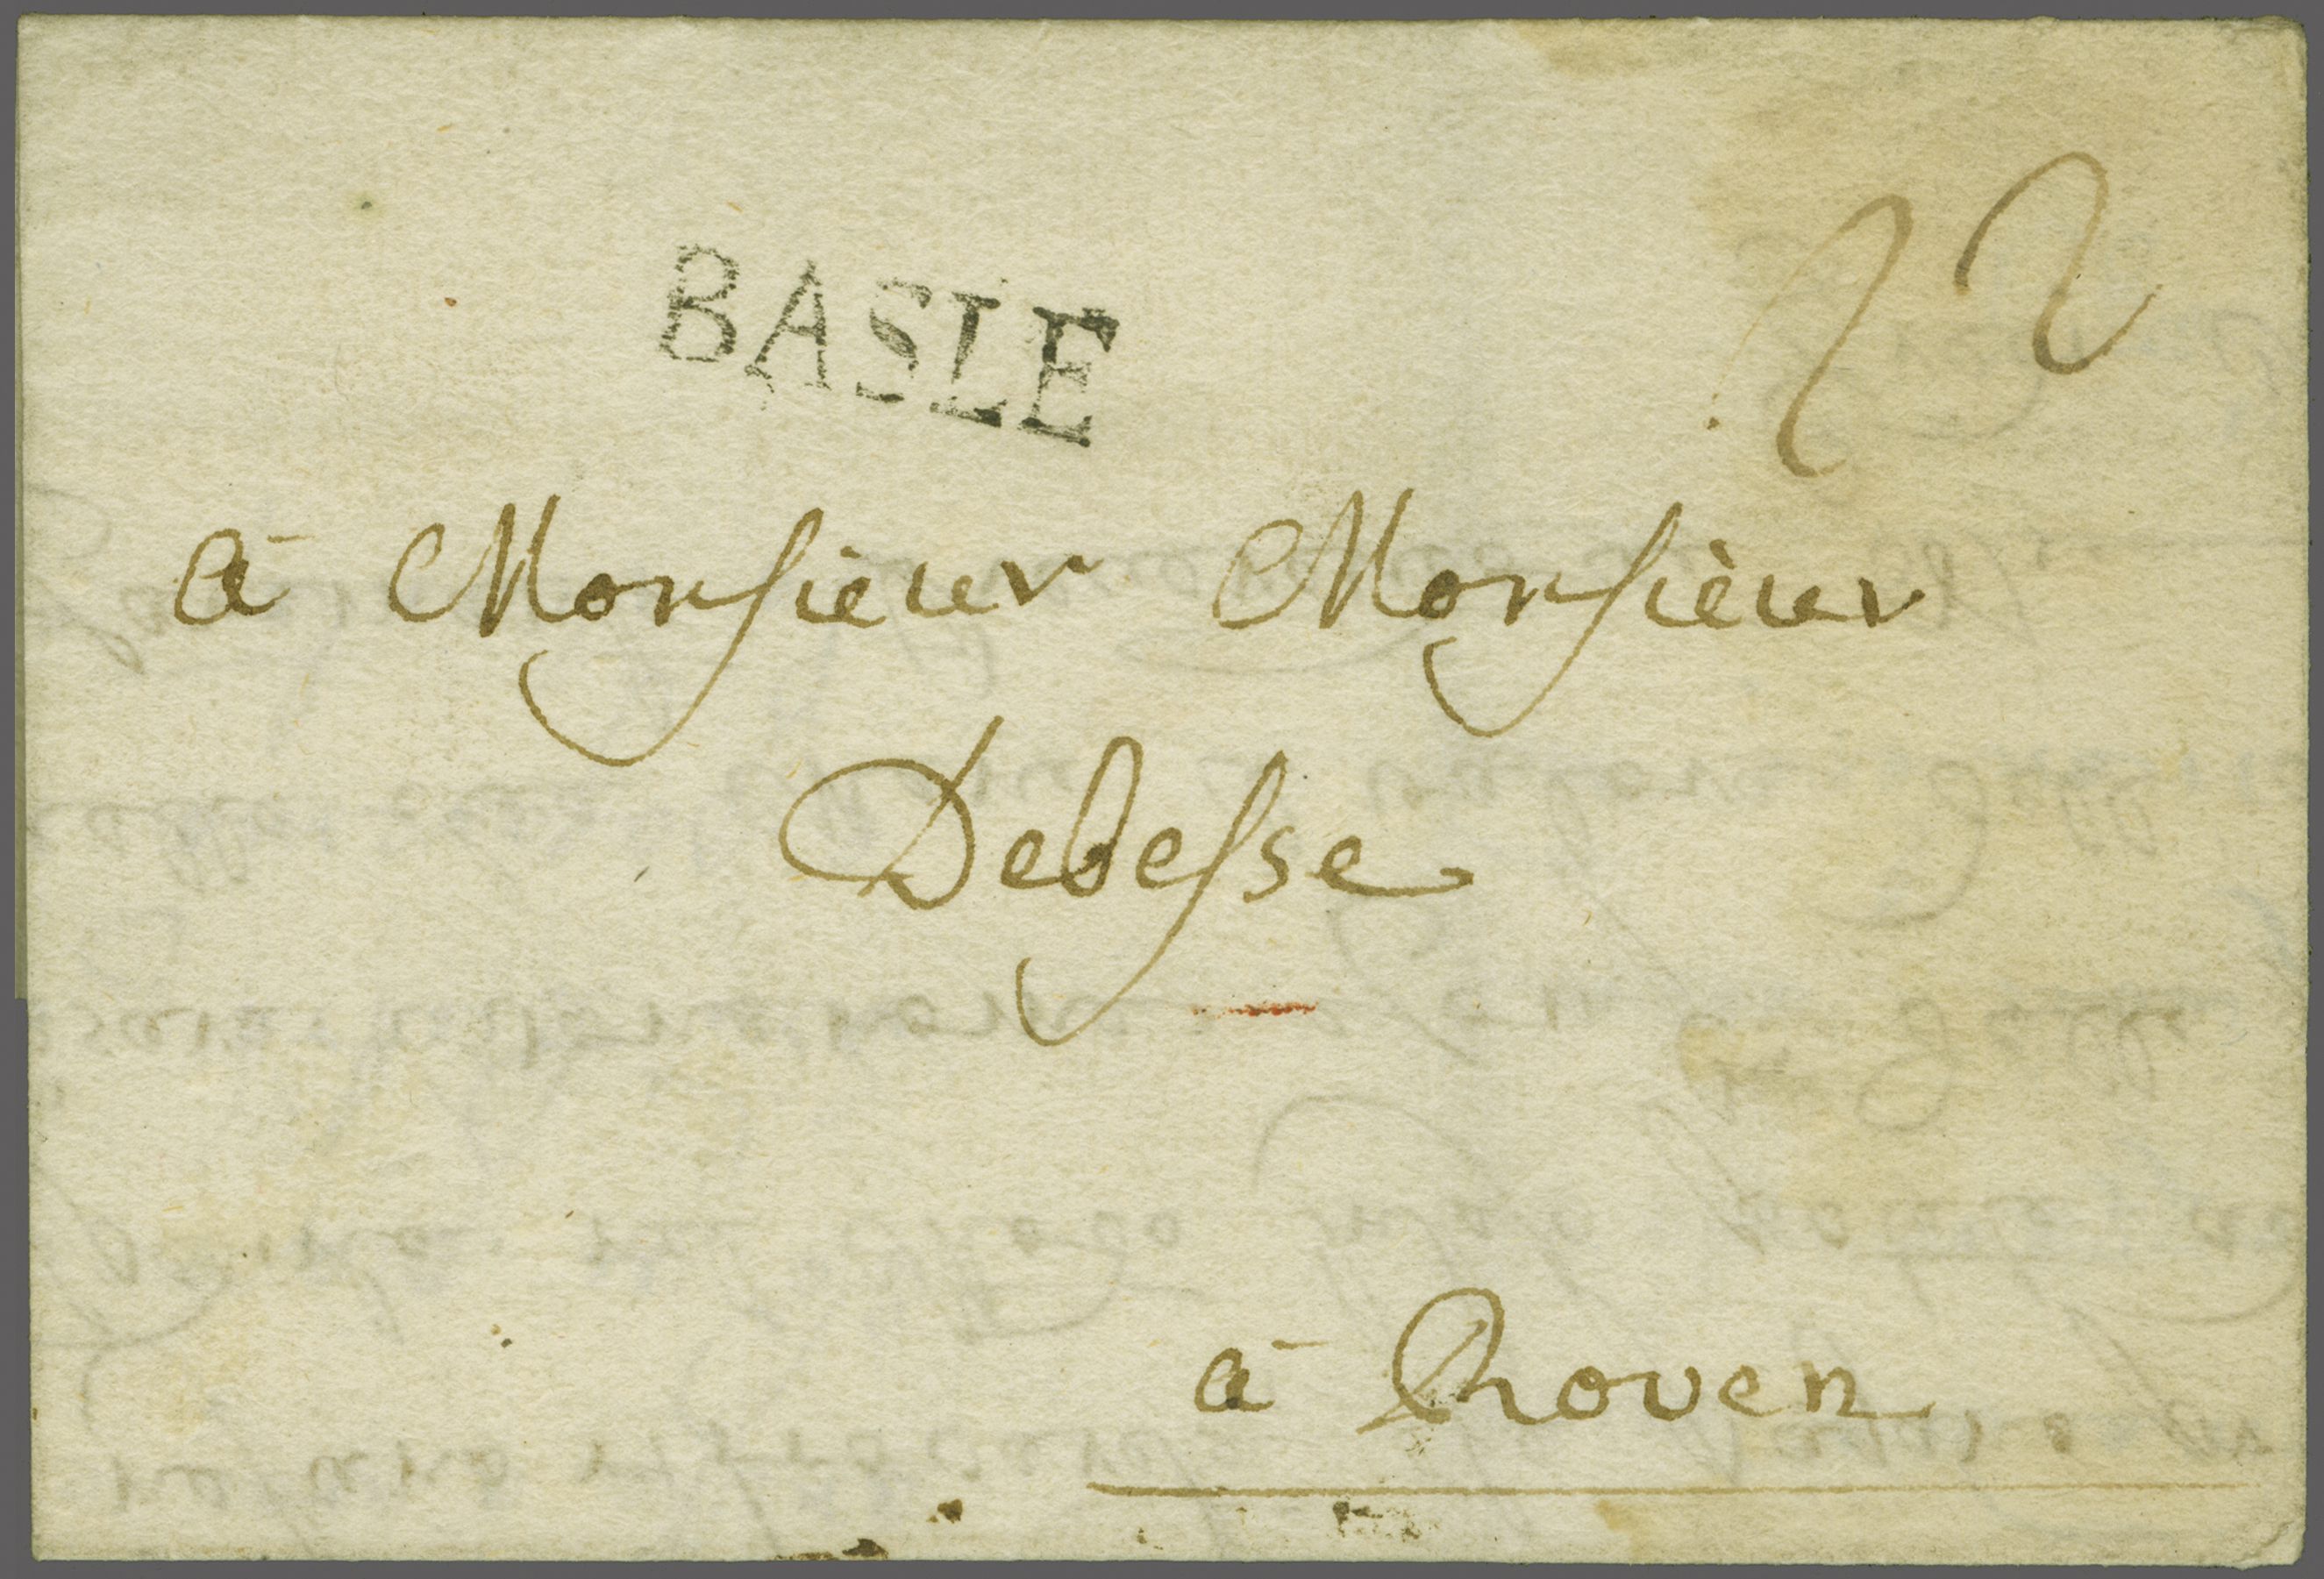 BASLE
22
à Monsieur Monsieur
Debesse
à Rouen